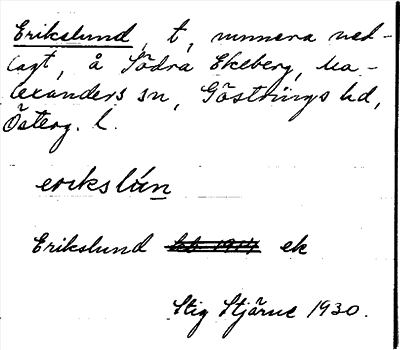 Erikslund, t, numera ned-
lagt, å Södra Ekeberg, Wa-
lexanders sn, Göstrings hd,
Österg. l.
erikslún
Erikslund ek
Stig Stjärne 1930.